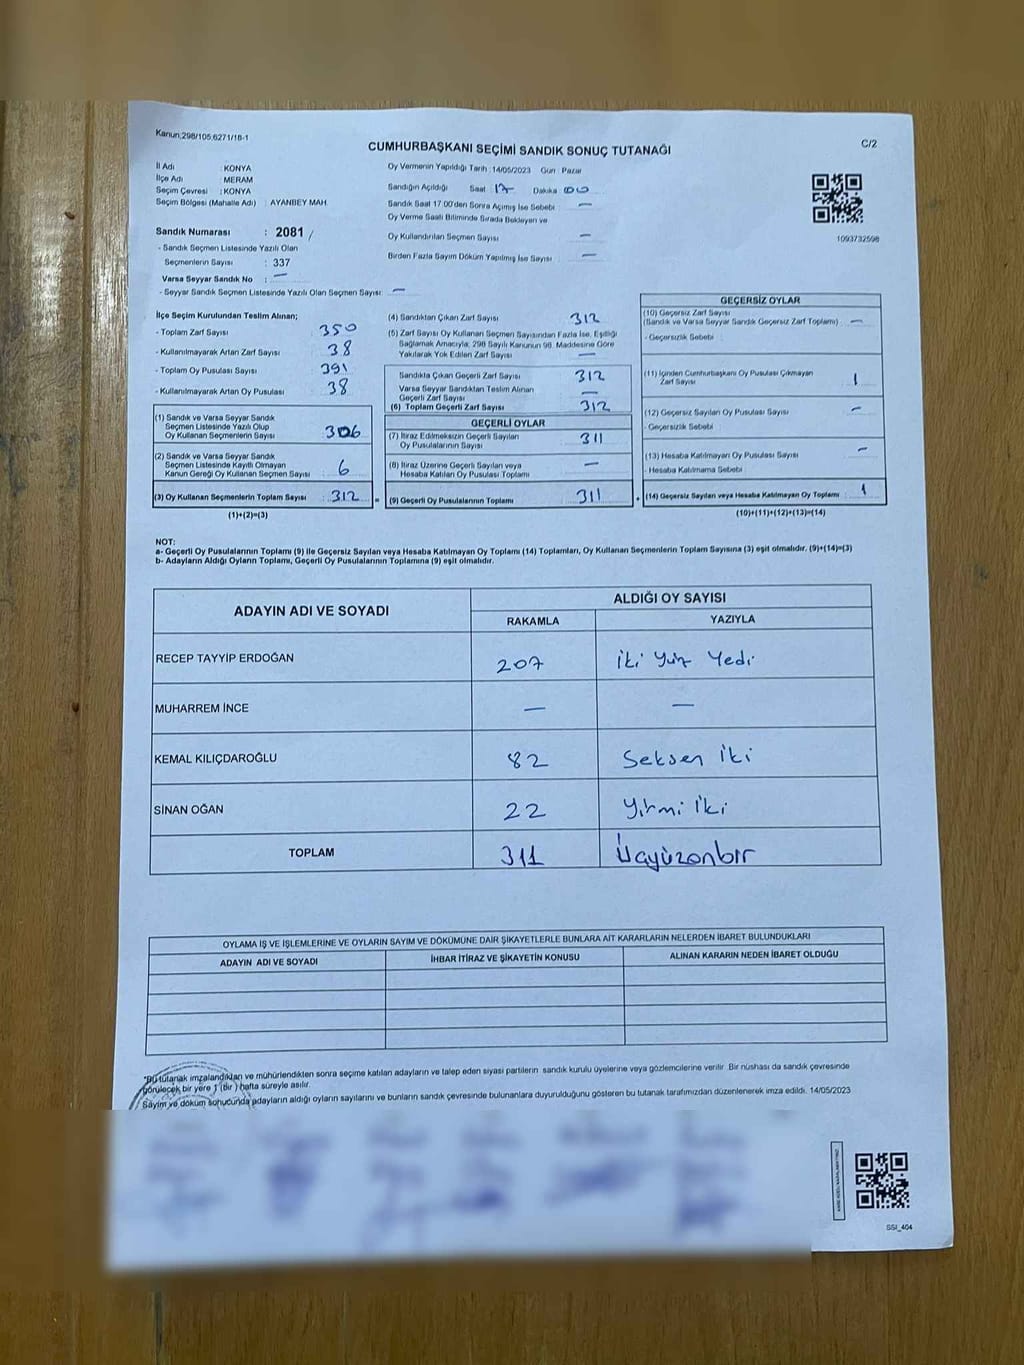 Kanun:298/105:6271/18-1
CUMHURBAŞKANI SEÇİMİ SANDIK SONUÇ TUTANAĞI
C/2
İl Adı : KONYA
İlçe Adı : MERAM
Seçim Çevresi : KONYA
Seçim Bölgesi (Mahalle Adı) : AYANBEY MAH.
Oy Vermenin Yapıldığı Tarih :14/05/2023 Gün Pazar
Sandığın Açıldığı Saat 17 Dakika 00
Sandık Saat 17:00'den Sonra Açımış İse Sebebi —
Oy Verme Saati Bitiminde Sırada Bekleyen ve
Oy Kullandırılan Seçmen Sayısı —
Birden Fazla Sayım Döküm Yapılmış İse Sayısı —
1093732598
Sandık Numarası : 2081 /
- Sandık Seçmen Listesinde Yazılı Olan
Seçmenlerin Sayısı : 337
Varsa Seyyar Sandık No : —
- Seyyar Sandık Seçmen Listesinde Yazılı Olan Seçmen Sayısı: —
İlçe Seçim Kurulundan Teslim Alınan;
- Toplam Zarf Sayısı 350
- Kullanılmayarak Artan Zarf Sayısı 38
- Toplam Oy Pusulası Sayısı 391
- Kullanılmayarak Artan Oy Pusulası 38
(1) Sandık ve Varsa Seyyar Sandık
Seçmen Listesinde Yazılı Olup
Oy Kullanan Seçmenlerin Sayısı 306
(2) Sandık ve Varsa Seyyar Sandık
Seçmen Listesinde Kayıtlı Olmayan
Kanun Gereği Oy Kullanan Seçmen Sayısı 6
(3) Oy Kullanan Seçmenlerin Toplam Sayısı : 312 =
(1)+(2)=(3)
(4) Sandıktan Çıkan Zarf Sayısı 312
(5) Zarf Sayısı Oy Kullanan Seçmen Sayısından Fazla İse, Eşitliği
Sağlamak Amacıyla, 298 Sayılı Kanunun 98. Maddesine Göre
Yakılarak Yok Edilen Zarf Sayısı —
Sandıkta Çıkan Geçerli Zarf Sayısı 312
Varsa Seyyar Sandıktan Teslim Alınan
Geçerli Zarf Sayısı —
(6) Toplam Geçerli Zarf Sayısı 312
GEÇERLİ OYLAR
(7) İtiraz Edilmeksizin Geçerli Sayılan
Oy Pusulalarının Sayısı 311
(8) İtiraz Üzerine Geçerli Sayılan veya
Hesaba Katılan Oy Pusulası Toplamı —
(9) Geçerli Oy Pusulalarının Toplamı 311 +
GEÇERSİZ OYLAR
(10) Geçersiz Zarf Sayısı
(Sandık ve Varsa Seyyar Sandık Geçersiz Zarf Toplamı) —
- Geçersizlik Sebebi :
(11) İçinden Cumhurbaşkanı Oy Pusulası Çıkmayan
Zarf Sayısı 1
(12) Geçersiz Sayılan Oy Pusulası Sayısı —
- Geçersizlik Sebebi :
(13) Hesaba Katılmayan Oy Pusulası Sayısı —
- Hesaba Katılmama Sebebi :
(14) Geçersiz Sayılan veya Hesaba Katılmayan Oy Toplamı : 1
(10)+(11)+(12)+(13)=(14)
NOT:
a- Geçerli Oy Pusulalarının Toplamı (9) ile Geçersiz Sayılan veya Hesaba Katılmayan Oy Toplamı (14) Toplamları, Oy Kullanan Seçmenlerin Toplam Sayısına (3) eşit olmalıdır. (9)+(14)=(3)
b- Adayların Aldığı Oyların Toplamı, Geçerli Oy Pusulalarının Toplamına (9) eşit olmalıdır.
ADAYIN ADI VE SOYADI
ALDIĞI OY SAYISI
RAKAMLA YAZIYLA
RECEP TAYYİP ERDOĞAN 207 İki Yüz Yedi
MUHARREM İNCE — —
KEMAL KILIÇDAROĞLU 82 Seksen İki
SİNAN OĞAN 22 Yirmi İki
TOPLAM 311 Üçyüzonbir
OYLAMA İŞ VE İŞLEMLERİNE VE OYLARIN SAYIM VE DÖKÜMÜNE DAİR ŞİKAYETLERLE BUNLARA AİT KARARLARIN NELERDEN İBARET BULUNDUKLARI
ADAYIN ADI VE SOYADI İHBAR İTİRAZ VE ŞİKAYETİN KONUSU ALINAN KARARIN NEDEN İBARET OLDUĞU
*Bu tutanak imzalandıktan ve mühürlendikten sonra seçime katılan adayların ve talep eden siyasi partilerin sandık kurulu üyelerine veya gözlemcilerine verilir. Bir nüshası da sandık çevresinde
görülecek bir yere 1 (bir ) hafta süreyle asılır.
Sayım ve döküm sonucunda adayların aldığı oyların sayılarını ve bunların sandık çevresinde bulunanlara duyurulduğunu gösteren bu tutanak tarafımızdan düzenlenerek imza edildi. 14/05/2023
SSI_404